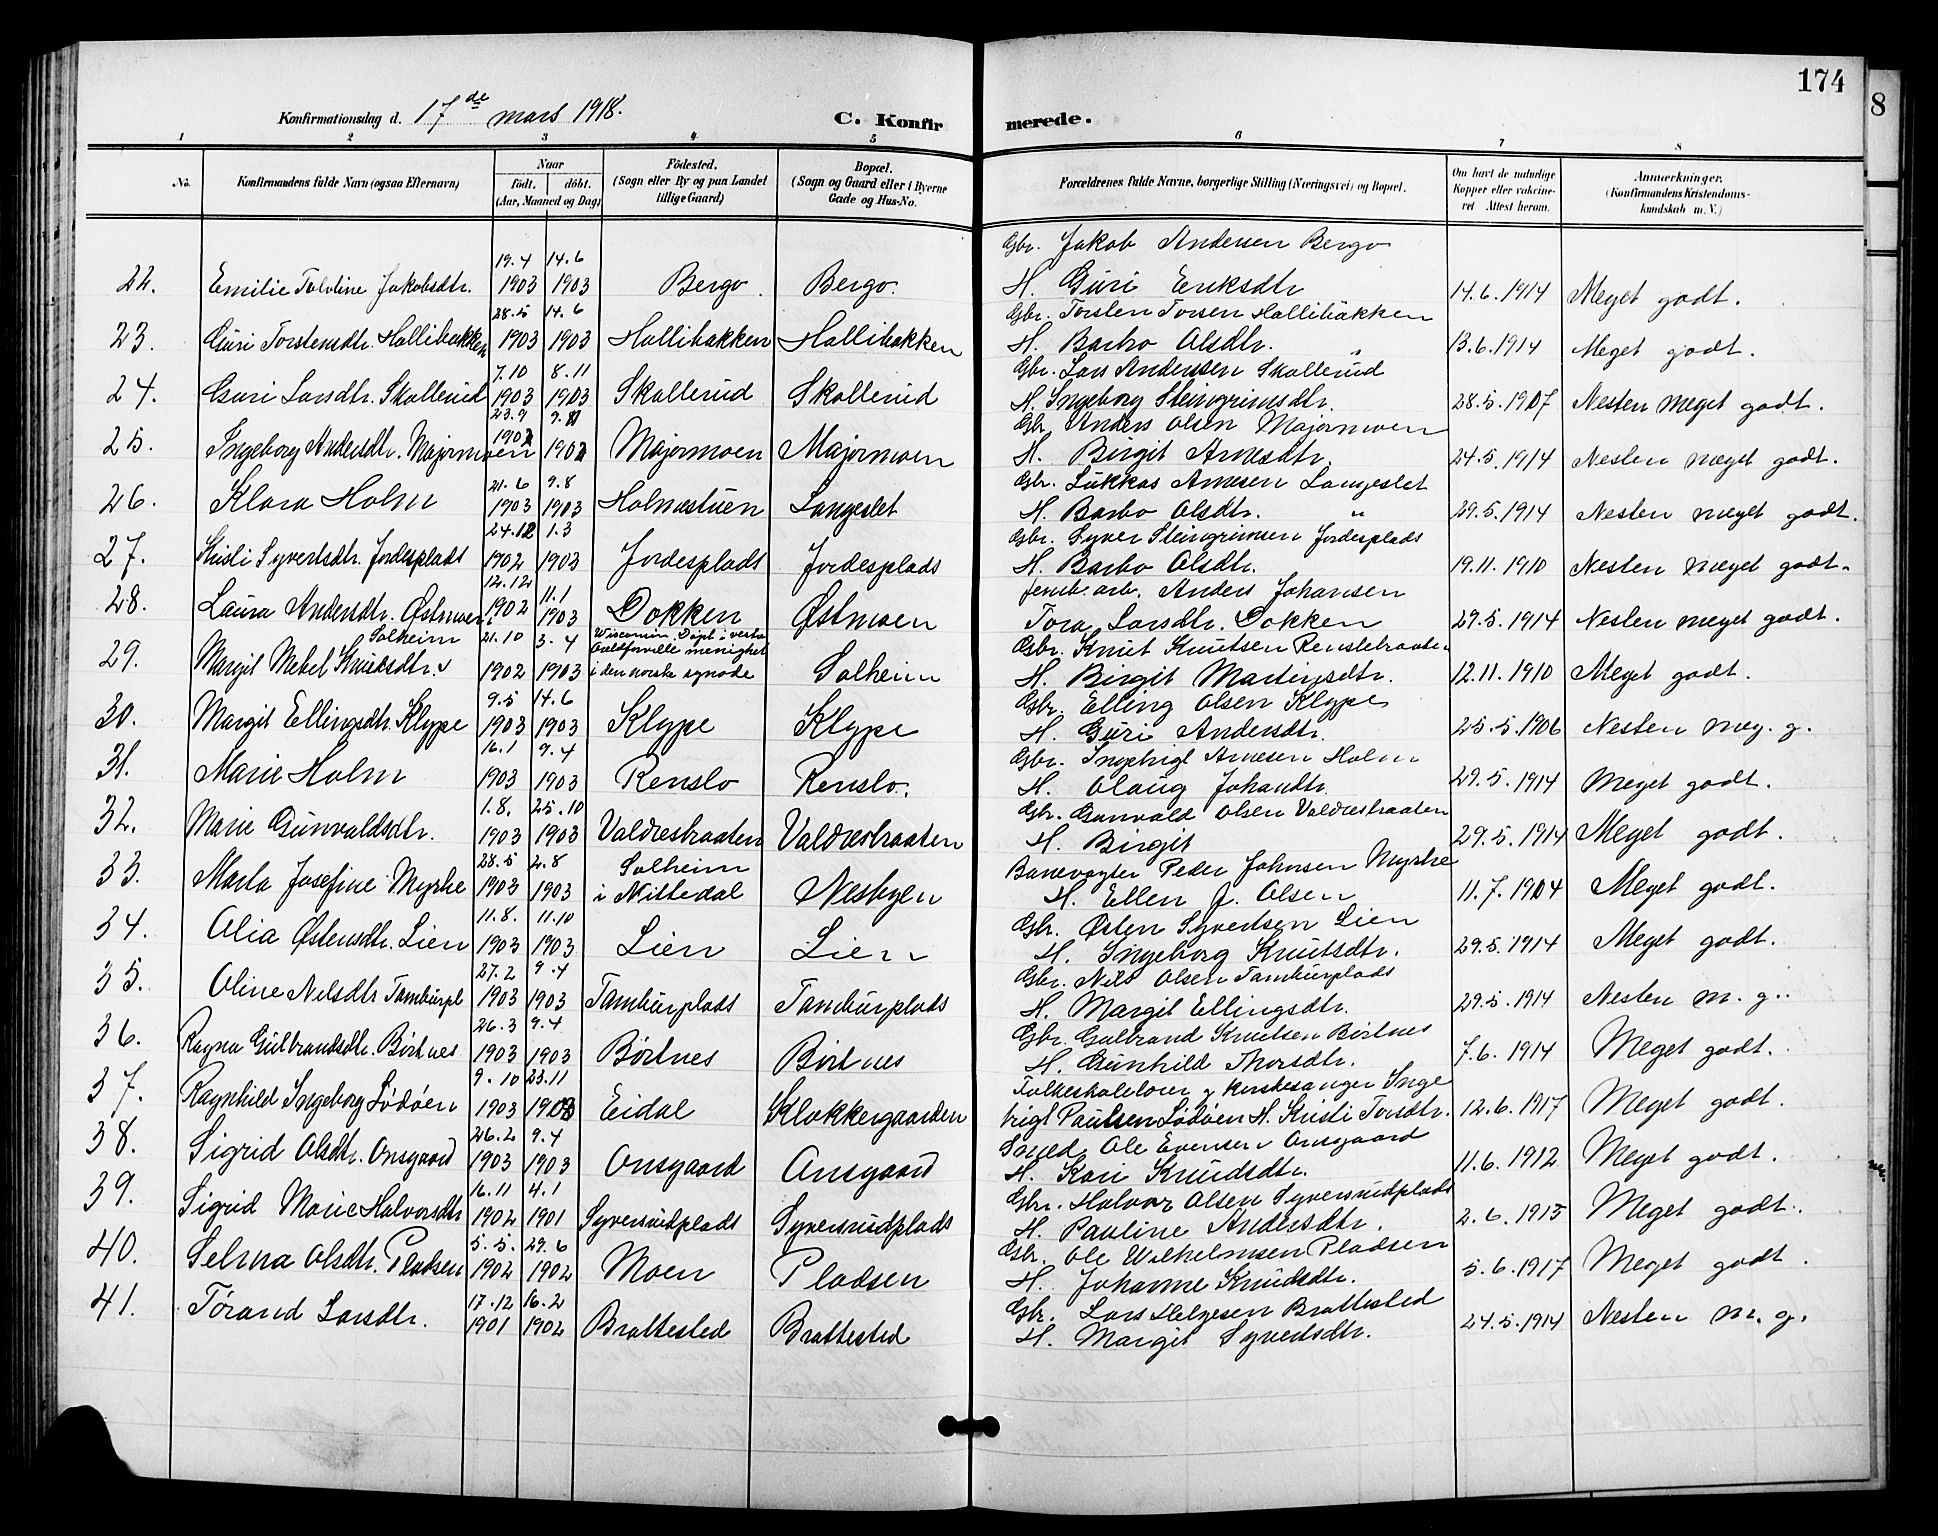 174
8
Konfirmationsdag d. 17de mars 1918.
C. Konfirmerede.
1 2 3 4 5 6 7 8
No. Konfirmandens fulde Navn (ogsaa Efternavn) Naar født. døbt. (Aar, Maaned og Dag) Fødested. (Sogn eller By og paa Landet tillige Gaard) Bopæl. (Sogn og Gaard eller i Byerne Gade og Hus-No. Forældrenes fulde Navne, borgerlige Stilling (Næringsvei) og Bopæl. Om havt de naturlige Kopper eller vakcineret Attest herom. Anmærkninger. (Konfirmandens Kristendomskundskab m. V.)
19.4 14.6 Gbr. Jakob Andersen Bergo
22. Emilie Jakobsdtr. 1903 1903 Bergo Bergo. H. Guri Eriksdtr 14.6.1914 Meget godt.
28.5 14.6 Gbr. Torsten Torsen Hallibakken
23. Guri Torstensdtr. Hallibakken 1903 1903 Hallibakken Hallibakken H. Barbo Olsdtr. " 13.6.1914 Meget godt.
7.10 8.11 Gbr. Lars Andersen Skallerud
24. Guri Larsdtr. Skallerud 1903 1903 Skallerud Skallerud H. Ingeborg Steingrimsdtr. 28.5.1907 Nesten meget godt.
23.9 Gbr. Anders Olsen Majormoen
25. Ingeborg Andersdtr. Majormoen 1902 1902 Majormoen Majormoen H. Birgit Arnesdtr. 24.5.1914 Nesten meget godt.
21.6 9.8 Gbr. Lukkas Arnesen Langeslet
26. Klara Holm 1903 1903 Holmestuen Langeslet H. Barbo Olsdtr. " 29.5.1914 Nesten meget godt.
24.12 1.3 Gbr. Syver Steingrimsen Jordesplads
27. Kristi Syvertsdtr. Jordesplads 1902 1903 Jordesplads Jordesplads H. Barbo Olsdtr. 19.11.1910 Nesten meget godt.
12.12 11.1 Jernb. arb. Anders Johansen
28. Laura Andersdtr. Østmoen 1902 1903 Dokken Østmoen Tora Larsdtr. Dokken 29.5.1914 Nesten meget godt.
Solheim 21.10 3.4 Wisconsin. Døpt i vestre menighet Gbr. Knut Knutsen
29. Margit Knutsdtr. 1902 1903 i den norske synode Solheim H. Birgit Martinsdtr. 12.11.1910 Meget godt.
9.5 14.6 Gbr. Elling Olsen Klype
30. Margit Ellingsdtr. Klype 1903 1903 Klype Klype H. Guri Andersdtr. 25.5.1906 Nesten meg. g.
16.1 9.4 Gbr. Ingebrigt Arnesen Holm
31. Marie Holm 1903 1903 Renslo Renslo. H. Olaug Johandtr. 29.5.1914 Meget godt.
1.8. 25.10 Gbr. Gunvald Olsen Valdrestraaten
32. Marie Gunvaldsdtr. 1903 1903 Valdrestraaten Valdrestraaten H. Birgit 29.5.1914 Meget godt.
28.5 2.8 Solheim Banevogter Peder Johnsen Myrhe
33. Marta Josefine Myrhe 1903 1903 i Nittedal Nesbyen H. Ellen J. Olsen 11.7.1904 Meget godt.
11.8. 11.10 Gbr. Østen Syvertsen Lien
34. Olia Østensdtr. Lien 1903 1903 Lien Lien H. Ingeborg Knutsdtr. 29.5.1914 Meget godt.
27.2 9.4 Gbr. Nils Olsen Tamburplads
35. Oline Nilsdtr Tamburpl 1903 1903 Tamburplads Tamburplads H. Margit Ellingsdtr. 29.5.1914 Nesten m. g.
26.3 9.4 Gbr. Gulbrand Knutsen Børtnes
36. Ragna Gulbrandsdtr. Børtnes 1903 1903 Børtnes Børtnes H. Gunhild Thorsdtr. 7.6.1914 Meget godt.
9.10 23.11 Folkeskolelærer og kirkesanger Inge
37. Ragnhild Ingeborg Lødøen 1903 1903 Eidal Klokkergaarden brigt Paulsen Lødøen H. Kristi Torsdtr. 12.6.1917 Meget godt.
26.2 9.4 Ole Evensen Onsgaard
38. Sigrid Olsdtr. Onsgaard 1903 1903 Onsgaard Onsgaard H. Kari Knudsdtr. 11.6.1912 Meget godt.
16.11 4.1 Gbr. Halvor Olsen Syversrudplads
39. Sigrid Marie Halvorsdtr 1902 1901 Syversrudplads Syversrudplads H. Pauline Andersdtr. 2.6.1915 Meget godt.
5.5. 29.6 Gbr. Ole Wilhelmsen Pladsen
40. Selma Olsdtr. Pladsen 1902 1902 Moen Pladsen H. Johanne Knudsdtr. 5.6.1917 Meget godt.
17.12 16.2 Gbr. Lars Helgesen Brattested
41. Tørand Larsdtr. 1901 1902 Brattested Brattested H. Margit Syvertsdtr. 24.5.1914 Nesten m. g.